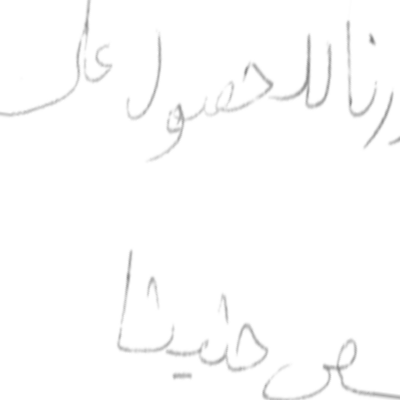 رنا للحصول على
ص حثيثا